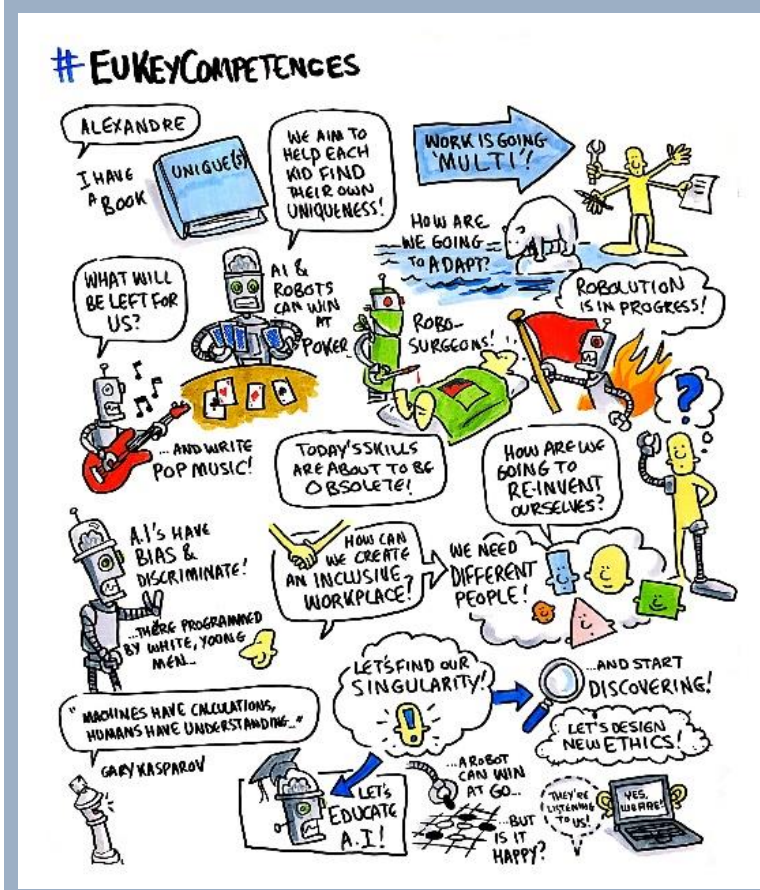 # EUKEYCOMPETENCES
ALEXANDRE
I HAVE
A
BOOK
UNIQUE(S)
WE AIM TO
HELP EACH
KID FIND
THEIR OWN
UNIQUENESS!
WORK IS GOING
'MULTI'!
HOW ARE
WE GOING
TO ADAPT?
WHAT WILL
BE LEFT FOR
US?
AI &
ROBOTS
CAN WIN
AT
POKER...
ROBO-
SURGEONS!
ROBOLUTION
IS IN PROGRESS!
...AND WRITE
POP MUSIC!
TODAY'S SKILLS
ARE ABOUT TO BE
OBSOLETE!
HOW ARE WE
GOING TO
RE-INVENT
OURSELVES?
?
A.I'S HAVE
BIAS &
DISCRIMINATE!
...THERE PROGRAMMED
BY WHITE, YOONG
MEN...
HOW CAN
WE CREATE
AN INCLUSIVE
WORKPLACE?
WE NEED
DIFFERENT
PEOPLE!
"MACHINES HAVE CALCULATIONS,
HUMANS HAVE UNDERSTANDING..."
GARY KASPAROV
LET'S FIND OUR
SINGULARITY!
!
...AND START
DISCOVERING!
LET'S DESIGN
NEW ETHICS!
LET'S
EDUCATE
A.I!
...A ROBOT
CAN WIN
AT GO...
...BUT
IS IT
HAPPY?
THEY'RE
LISTENING
TO US!
YES,
WE ARE!